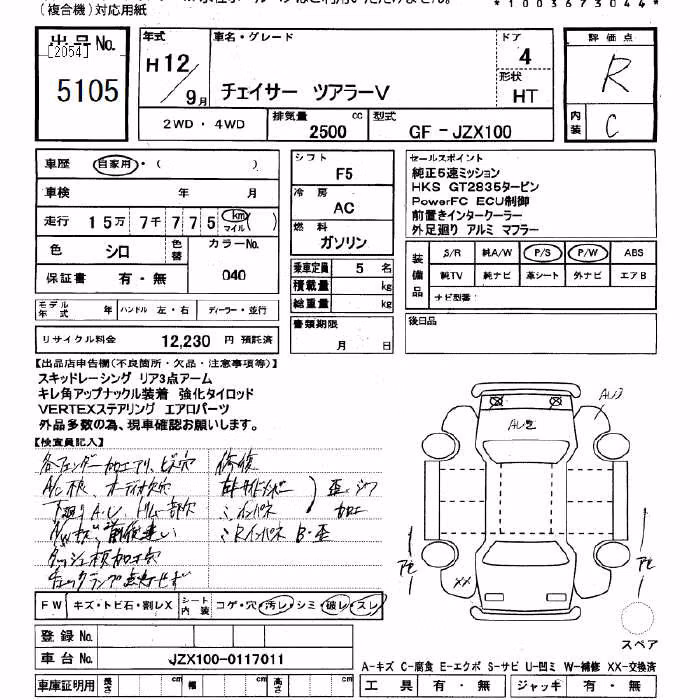 (複合機)対応用紙
*1003673044*
出品No.
[2054]
5105
年式
H12/9月
車名・グレード
チェイサー ツアラーV
ドア
4
形状
HT
評価点
R
内装
C
2WD・4WD
排気量
2500 cc
型式
GF-JZX100
車歴 自家用・( )
車検 年 月
走行 15万 7千 7 7 5 km マイル ( )
色 シロ
色替
カラーNo.
040
保証書 有・無
モデル年式 年 ハンドル 左・右 ディーラー・並行
リサイクル料金 12,230 円 預託済
シフト
F5
冷房
AC
燃料
ガソリン
乗車定員 5 名
積載量 kg
総重量 kg
書類期限
月 日
セールスポイント
純正5速ミッション
HKS GT2835タービン
PowerFC ECU制御
前置きインタークーラー
外足廻り アルミ マフラー
装備品
S/R 純A/W P/S P/W ABS
純TV 純ナビ 革シート 外ナビ エアB
ナビ型番:
後日品
【出品店申告欄(不良箇所・欠品・注意事項等)】
スキッドレーシング リア3点アーム
キレ角アップナックル装着 強化タイロッド
VERTEXステアリング エアロパーツ
外品多数の為、現車確認お願いします。
【検査員記入】
各フェンダー加工アリ、ビス穴
修復
ダッシュ板加工穴
チェックランプ点灯せず
XX
FW キズ・トビ石・割レX
シート内装 コゲ・穴・汚レ・シミ・破レ・スレ
スペア
登録No.
車台No. JZX100-0117011
A-キズ C-腐食 E-エクボ S-サビ U-凹ミ W-補修 XX-交換済
車庫証明用 長さ cm 幅 cm 高さ cm
工具 有・無 ジャッキ 有・無